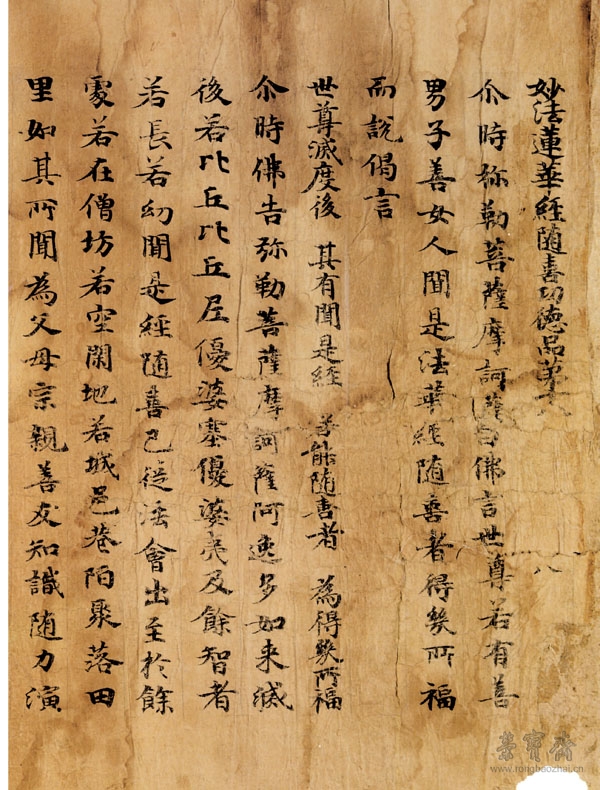 妙法蓮華經随喜功德品苐十八
八
尒時弥勒菩薩摩訶薩白佛言世尊若有善
男子善女人聞是法華經随喜者得幾所福
而說偈言
世尊滅度後 其有聞是經 若能随喜者 為得幾所福
尒時佛告弥勒菩薩摩訶薩阿逸多如来滅
後若比丘比丘尼優婆塞優婆夷及餘智者
若長若幼聞是經随喜已從法會出至於餘
處若在僧坊若空閑地若城邑巷陌聚落田
里如其所聞為父母宗親善友知識随力演
榮寶齋
www.rongbaozhai.cn